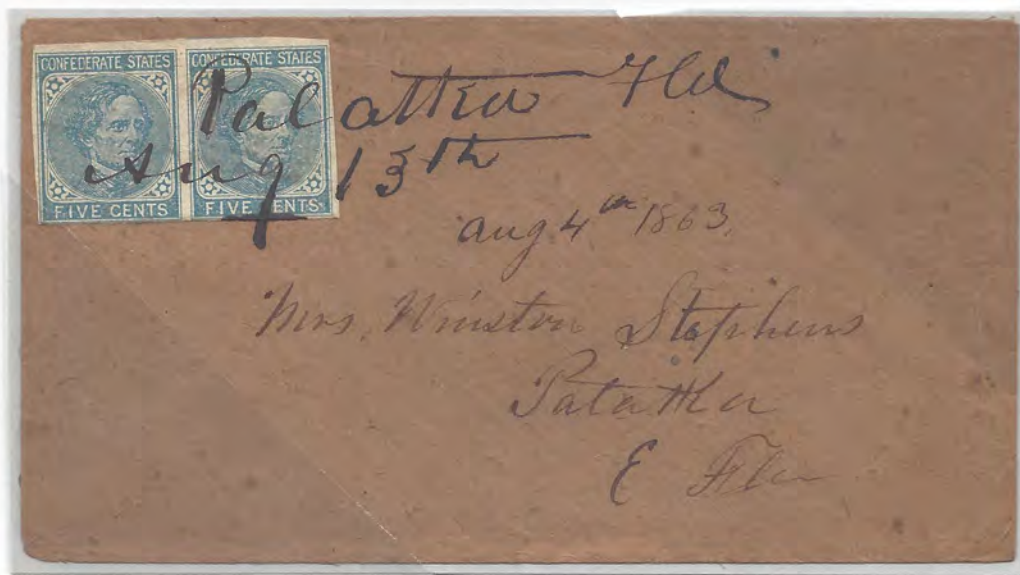 CONFEDERATE STATES CONFEDERATE STATES
FIVE CENTS FIVE CENTS
Palatka Fla
Aug 13th
Aug 4th 1863.
Mrs. Winston Stephens
Palatka
E Fla